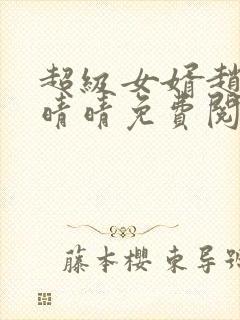 超級女婿趙
晴晴免費閱
藤本櫻 東导